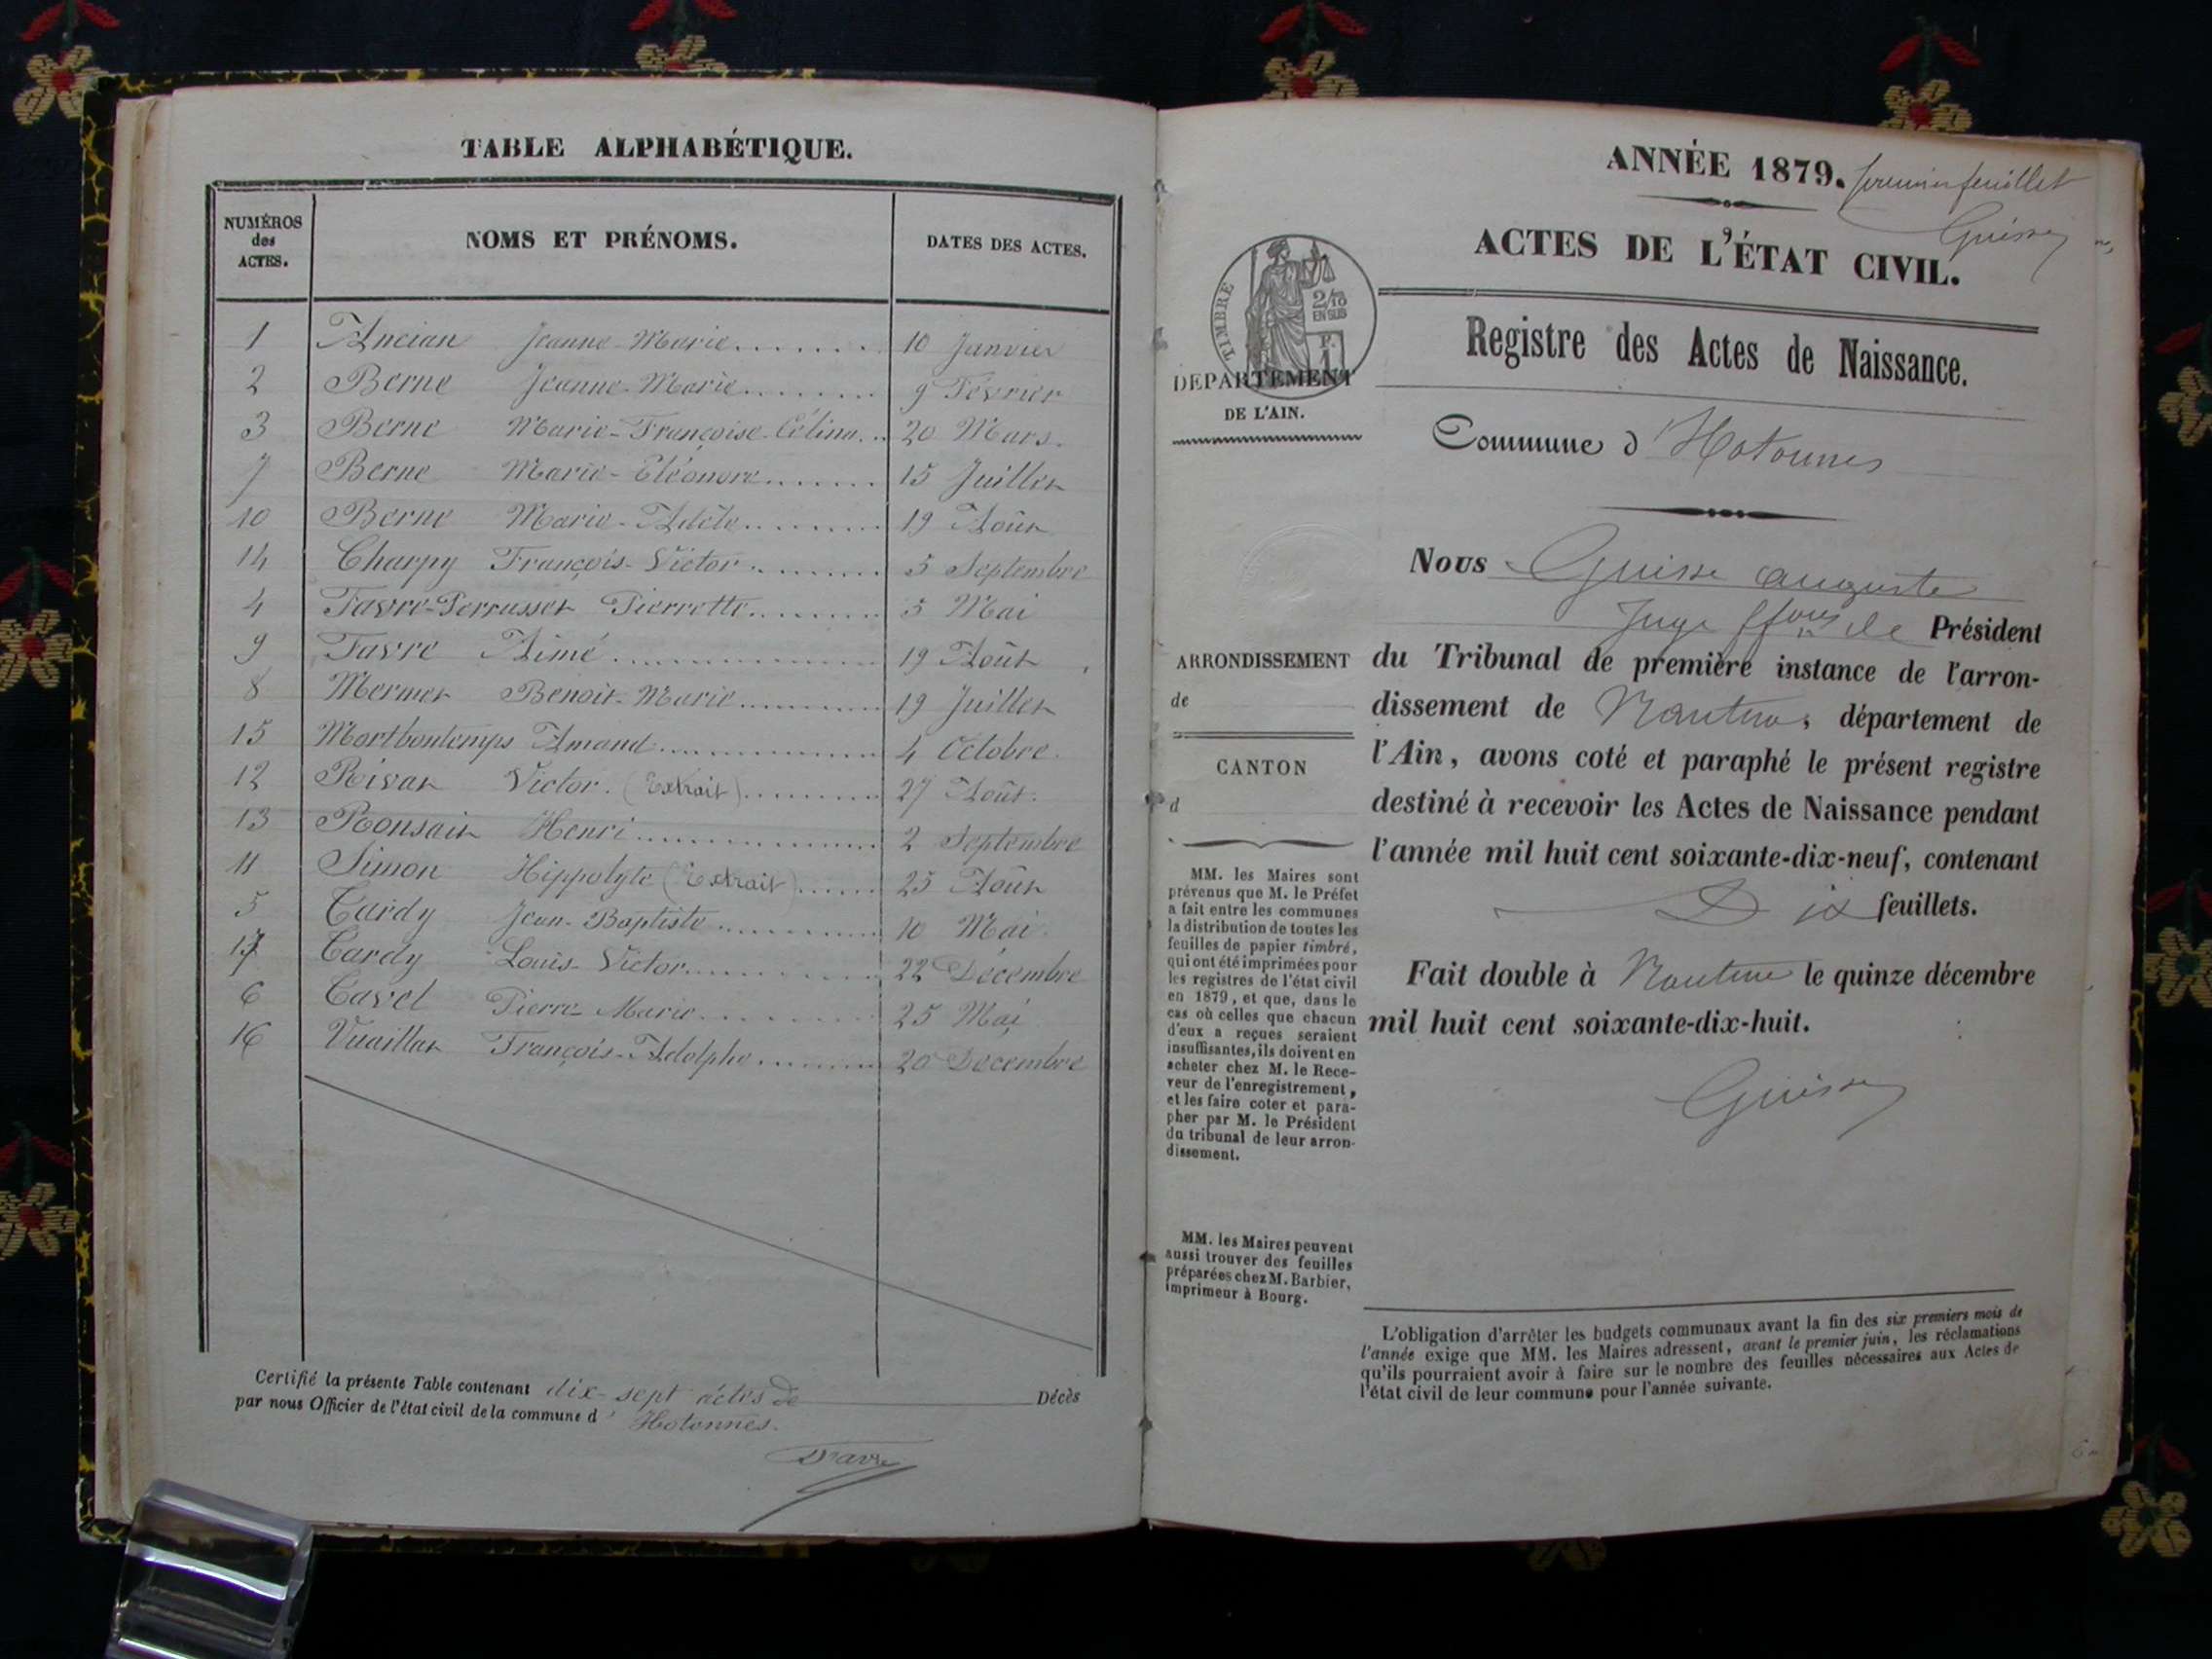 TABLE ALPHABÉTIQUE.
NUMÉROS des ACTES. NOMS ET PRÉNOMS. DATES DES ACTES.
1 Ancian Jeanne-Marie 10 Janvier
2 Berne Jeanne-Marie 9 Février
3 Berne Marie-Françoise-Célina 20 Mars.
7 Berne Marie-Eléonore 15 Juillet
10 Berne Marie-Adèle 19 Août
14 Charpy François-Victor 5 Septembre
4 Favre-Perrusset Pierrette 5 Mai
9 Favre Aimé 19 Août
8 Mermet Benoit-Marie 19 Juillet
15 Mortbontemps Amand 4 Octobre.
12 Rivat Victor. (Extrait) 27 Août.
13 Ronsait Henri 2 Septembre
11 Simon Hippolyte (Extrait) 25 Août
5 Tardy Jean-Baptiste 10 Mai.
17 Tardy Louis-Victor 22 Décembre
6 Tavel Pierre-Marie 25 Mai
16 Vuaillat François-Adolphe 20 Décembre
Certifié la présente Table contenant dix-sept actes de Décès
par nous Officier de l'état civil de la commune d' Hotonnes.
Favre
ANNÉE 1879. premier feuillet
Guisse
ACTES DE L'ÉTAT CIVIL.
TIMBRE
2/10
EN SUS
Registre des Actes de Naissance.
DEPARTEMENT
DE L'AIN.
Commune d'Hotonnes
Nous Guisse Auguste
Juge ffons de Président
du Tribunal de première instance de l'arron-
dissement de Nantua, département de
l'Ain, avons coté et paraphé le présent registre
destiné à recevoir les Actes de Naissance pendant
l'année mil huit cent soixante-dix-neuf, contenant
Dix feuillets.
Fait double à Nantua le quinze décembre
mil huit cent soixante-dix-huit.
Guisse
ARRONDISSEMENT
de
CANTON
d
MM. les Maires sont
prévenus que M. le Préfet
a fait entre les communes
la distribution de toutes les
feuilles de papier timbré,
qui ont été imprimées pour
les registres de l'état civil
en 1879, et que, dans le
cas où celles que chacun
d'eux a reçues seraient
insuffisantes, ils doivent en
acheter chez M. le Rece-
veur de l'enregistrement,
et les faire coter et para-
pher par M. le Président
du tribunal de leur arron-
dissement.
MM. les Maires peuvent
aussi trouver des feuilles
préparées chez M. Barbier,
imprimeur à Bourg.
L'obligation d'arrêter les budgets communaux avant la fin des six premiers mois de
l'année exige que MM. les Maires adressent, avant le premier juin, les réclamations
qu'ils pourraient avoir à faire sur le nombre des feuilles nécessaires aux Actes de
l'état civil de leur commune pour l'année suivante.